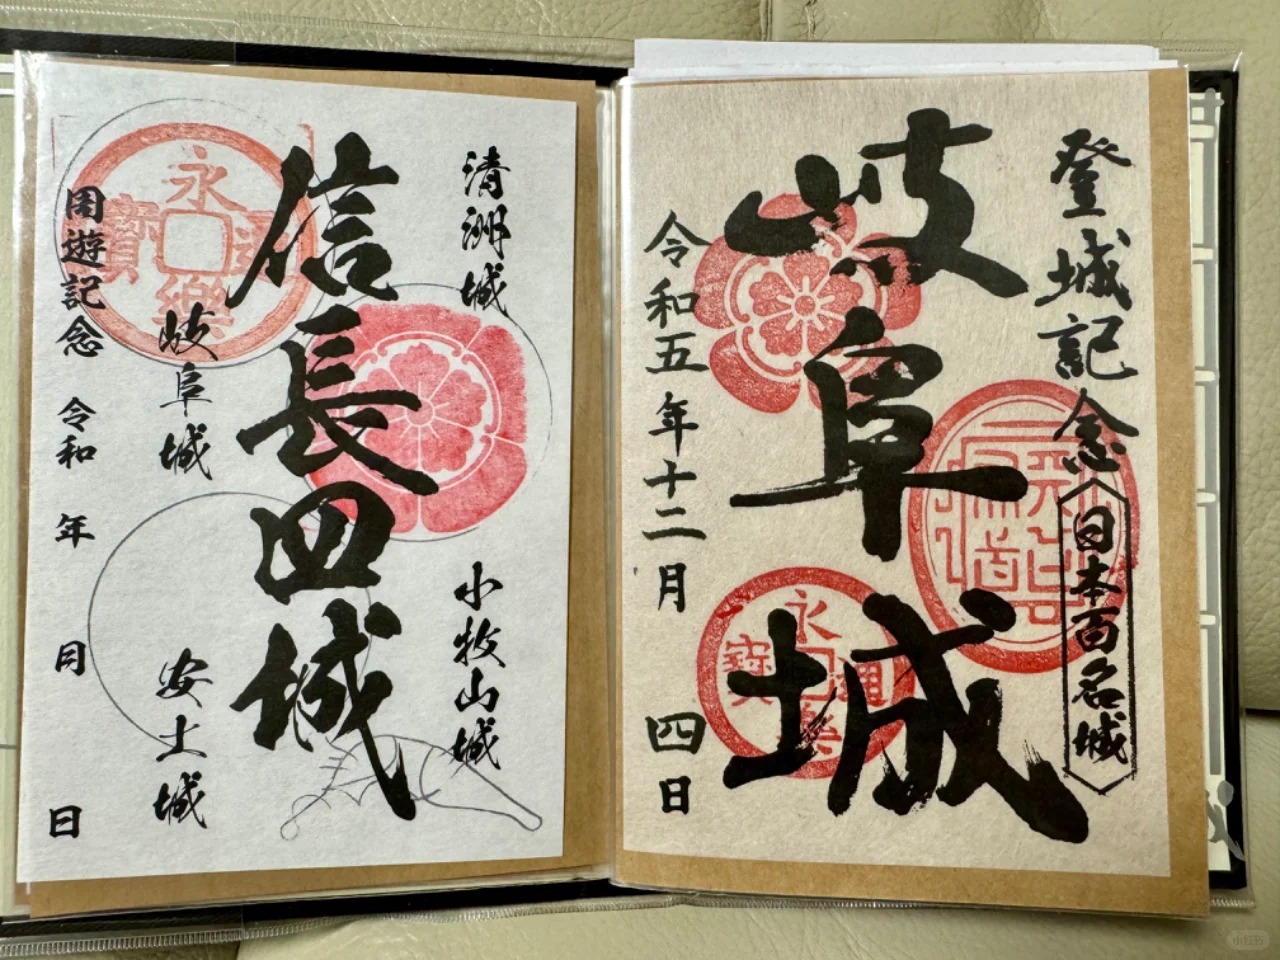 登城記念
日本百名城
岐阜城
令和五年十二月四日
永樂通寳
清洲城
小牧山城
信長四城
岐阜城
安土城
周遊記念 令和 年 月 日
永樂通寳
小红书